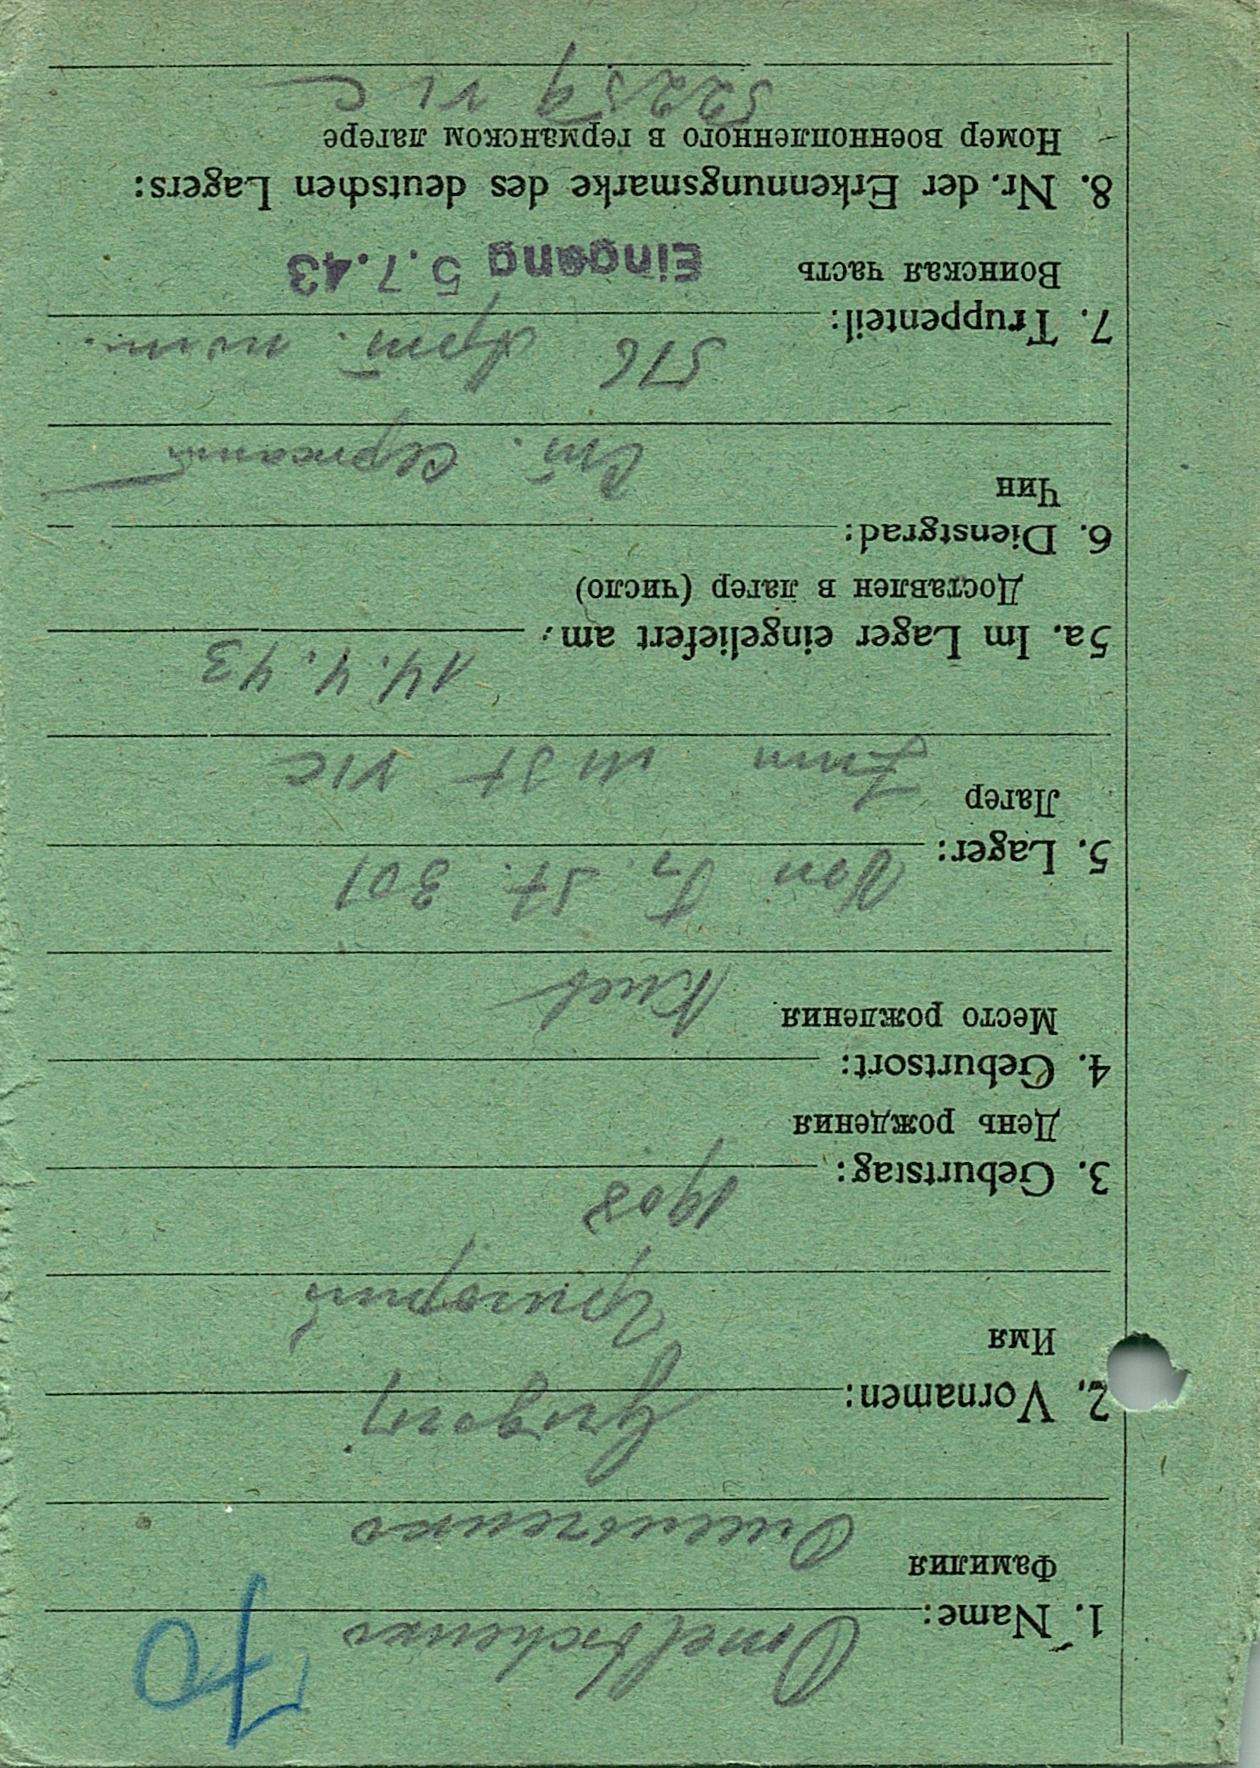 70
1. Name: Omeltschenko
Фамилия Омельченко
2. Vornamen: Grigorij
Имя Григорий
3. Geburtstag: 1908
День рождения
4. Geburtsort:
Место рождения Киев
5. Lager: Von Fr. St. 301
Лагер
VIC
5a. Im Lager eingeliefert am: 14.4.43
Доставлен в лагер (число)
6. Dienstgrad:
Чин Ст. Сержант
7. Truppenteil: 516 Арт. полк.
Воинская часть Eingang 5.7.43
8. Nr. der Erkennungsmarke des deutschen Lagers:
Номер военнопленного в германском лагере
52259 VIC